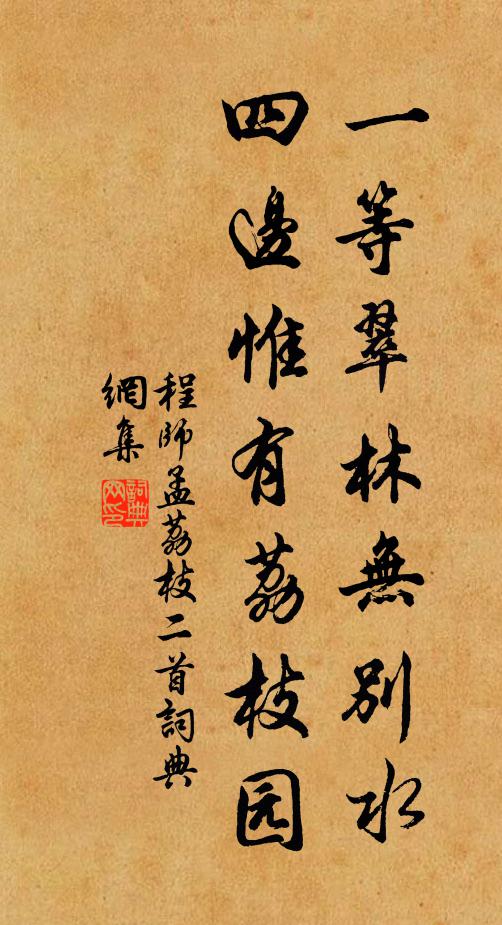 一等翠林無别水
四邊惟有荔枝园
程師孟荔枝二首詞典
網集
詞典
网印